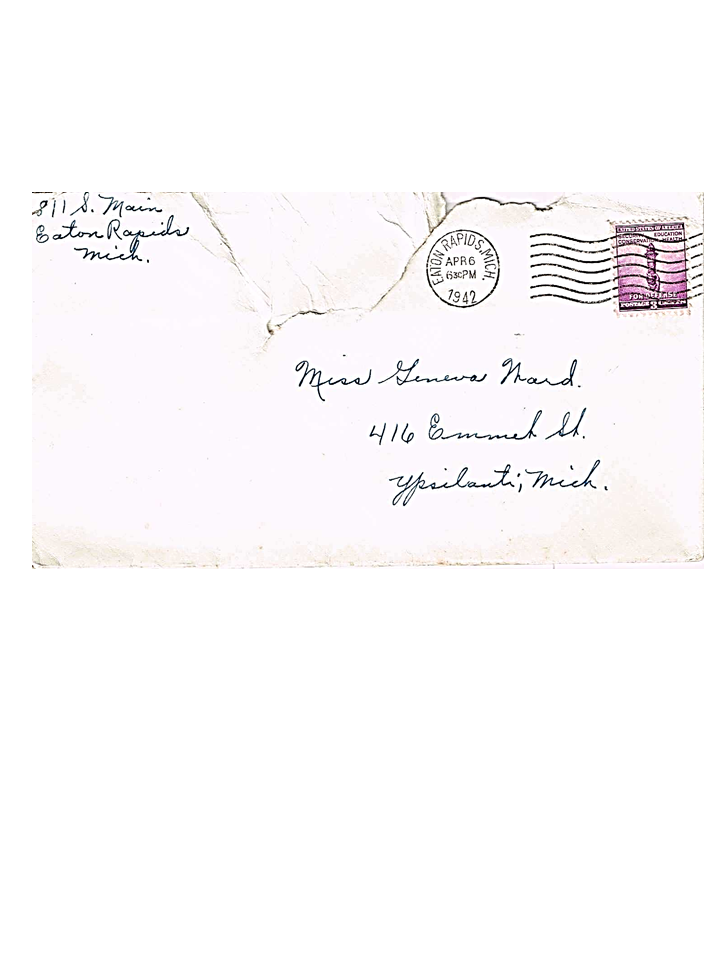 811 S. Main
Eaton Rapids
Mich.
EATON RAPIDS, MICH.
APR 6
630PM
1942
UNITED STATES OF AMERICA
SECURITY EDUCATION
CONSERVATION HEALTH
FOR DEFENSE
POSTAGE 3 CENTS
Miss Geneva Ward.
416 Emmet St.
Ypsilanti, Mich.